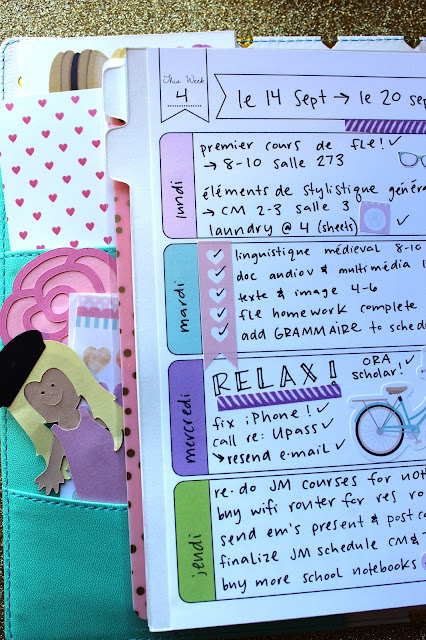 This Week
4
le 14 Sept → le 20 sep
lundi
premier cours de fle! ✓
→ 8-10 salle 273
éléments de stylistique génér
→ CM 2-3 salle 3
laundry @ 4 (sheets) ✓
mardi
✓ linguistique médieval 8-10
✓ doc andiov & multimédia
✓ texte & image 4-6
✓ fle homework complete
✓ add GRAMMAIRE to sched
mercredi
RELAX!
ORA ✓
scholar!
fix iPhone! ✓
call re: Upass ✓
↳ resend e-mail ✓
jendi
re-do JM courses for not
buy wifi router for res ro
send em's present & post c
finalize JM schedule CM &
buy more school notebooks